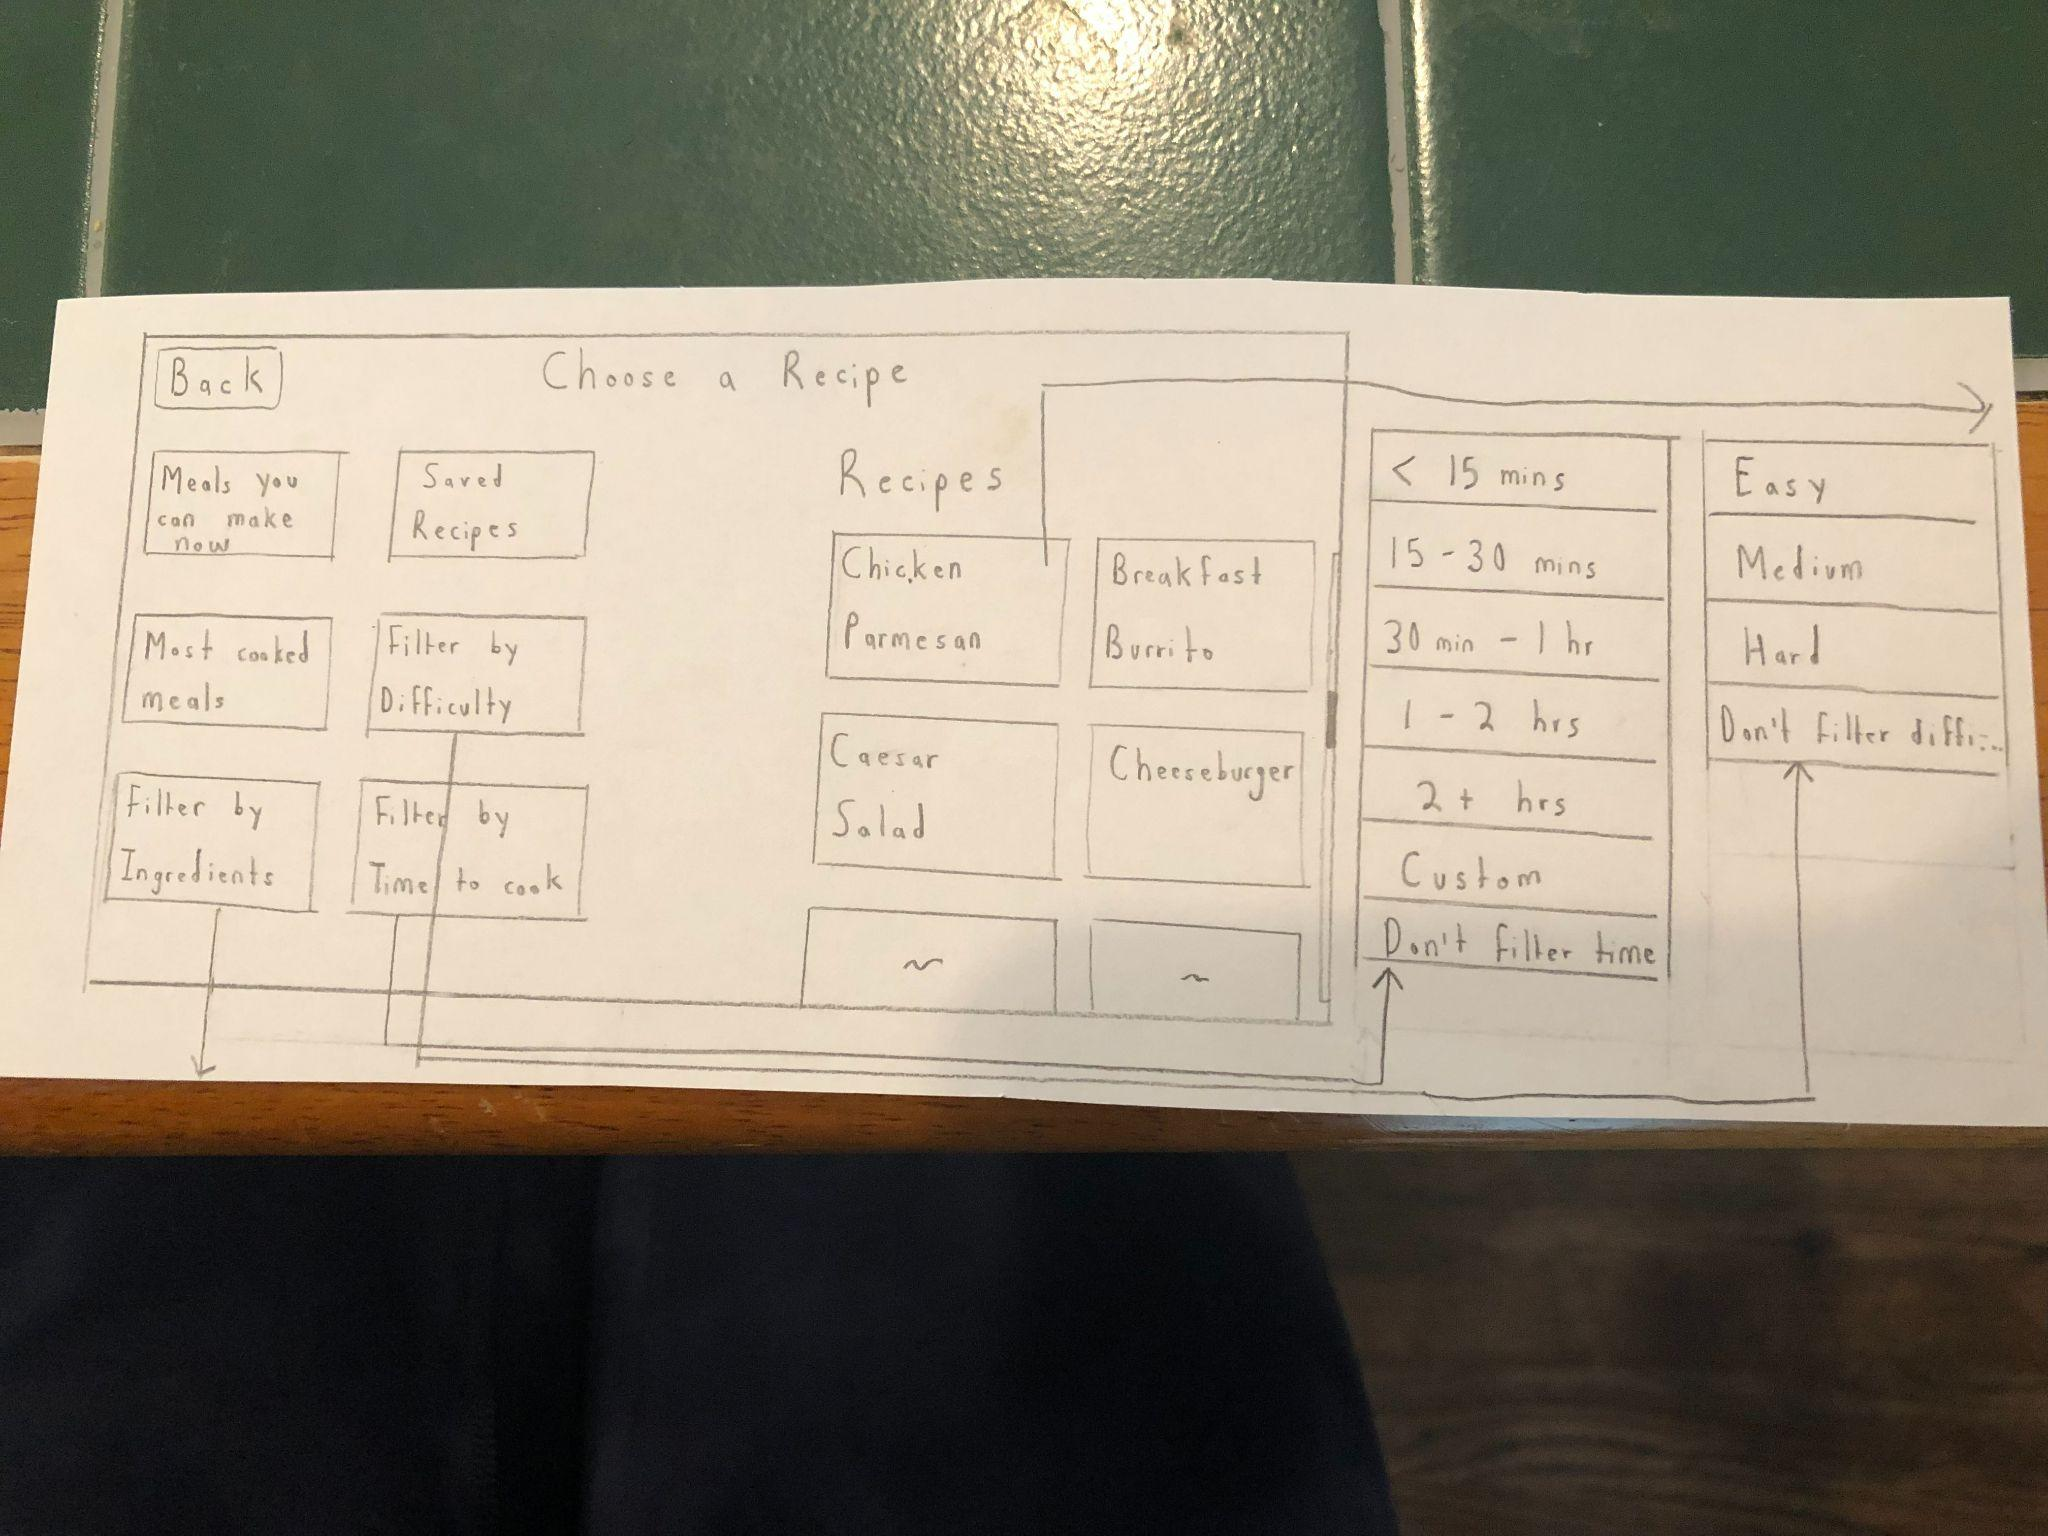 Back
Choose a Recipe
Meals you
can make
now
Saved
Recipes
Most cooked
meals
Filter by
Difficulty
Filter by
Ingredients
Filter by
Time to cook
Recipes
Chicken
Parmesan
Breakfast
Burrito
Caesar
Salad
Cheeseburger
~
~
< 15 mins
15 - 30 mins
30 min - 1 hr
1 - 2 hrs
2+ hrs
Custom
Don't filter time
Easy
Medium
Hard
Don't filter diffi...